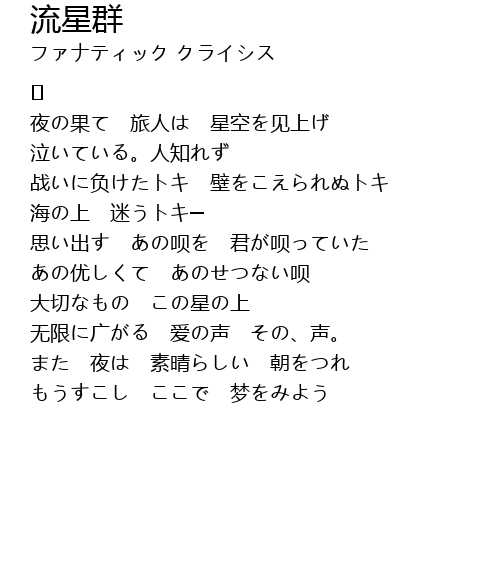 流星群
ファナティック クライシス
夜の果て　旅人は　星空を见上げ
泣いている。人知れず
战いに负けたトキ　壁をこえられぬトキ
海の上　迷うトキー
思い出す　あの呗を　君が呗っていた
あの优しくて　あのせつない呗
大切なもの　この星の上
无限に广がる　爱の声　その、声。
また　夜は　素晴らしい　朝をつれ
もうすこし　ここで　梦をみよう